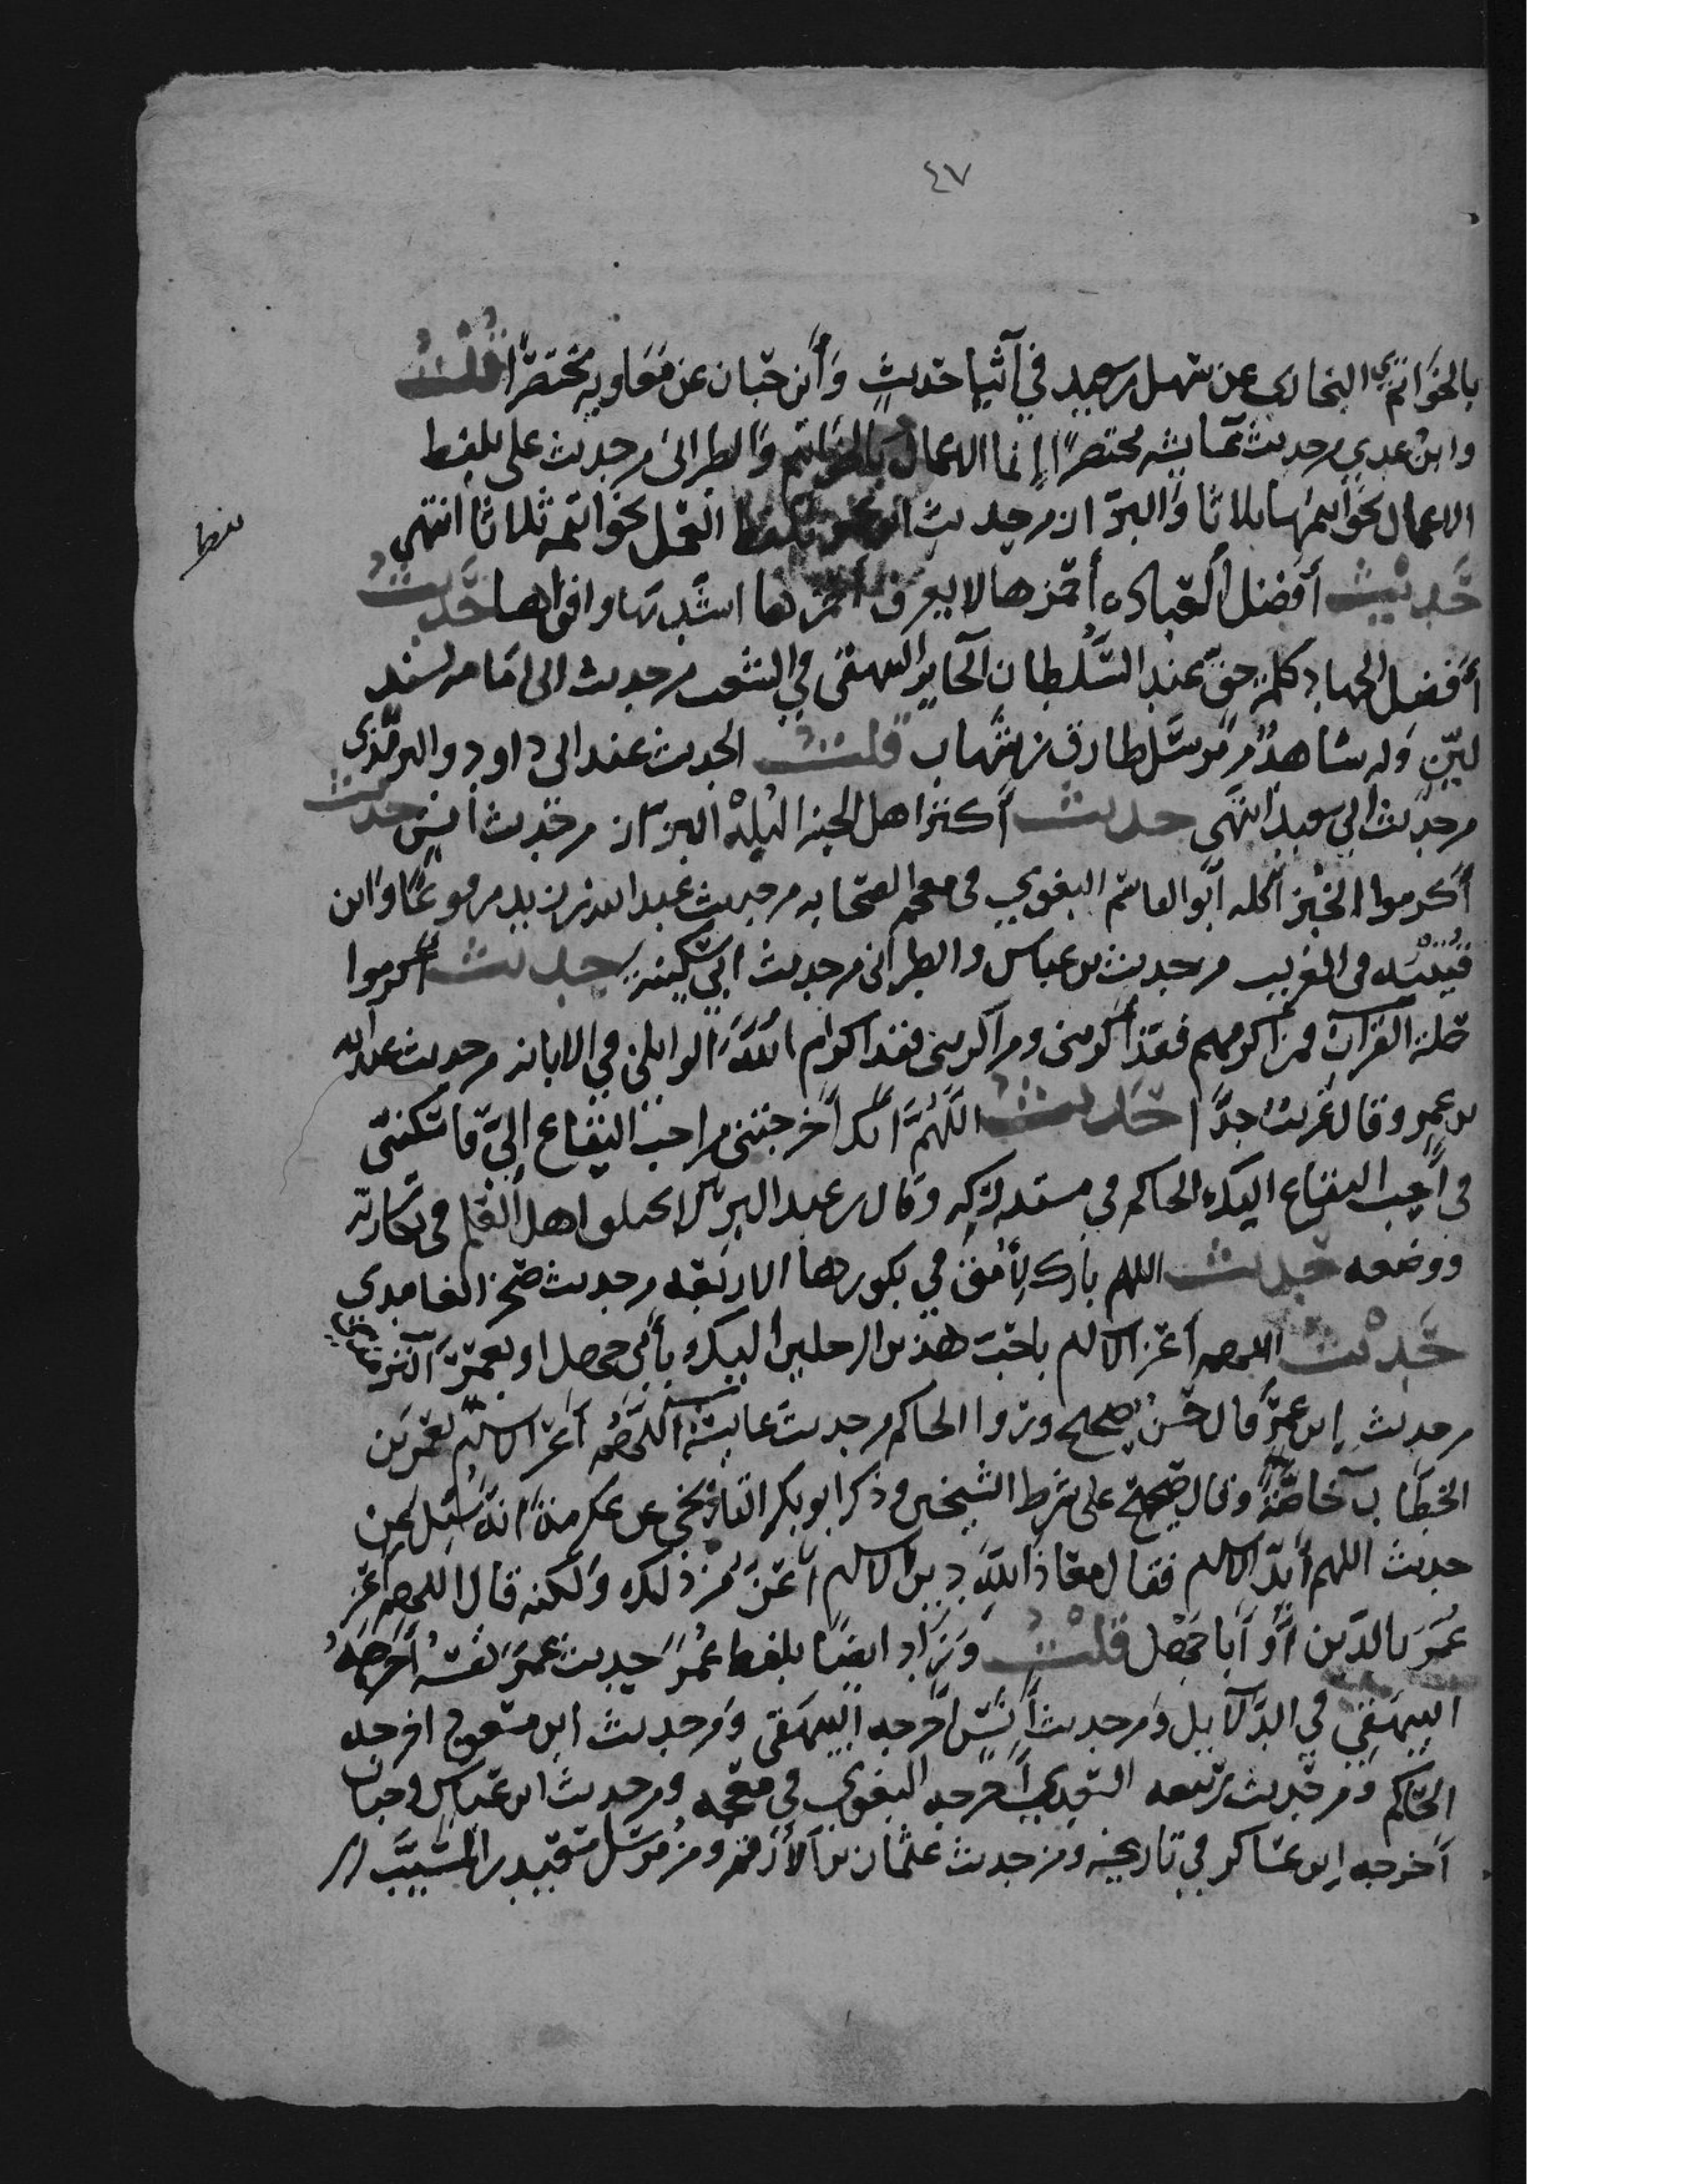 ٤٧
بالخواتيم البخاري عن سهل بن سعد في اثناء حديث وابن حبان عن معاويه مختصرا قلت
وابن عدي من حديث عائشه مختصرا إنما الاعمال بالخواتيم والطبراني من حديث علي بلفظ
الاعمال بخواتيمها ثلاثا والبزار من حديث ابن عمر بلفظ العمل بخواتمه ثلاثا انتهى
حديث أفضل العباده أحمزها لا يعرف احمزها اشدها واقواها حديث
أفضل الجهاد كلمة حق عند السلطان الجاير البيهقي في الشعب من حديث ابي امامه بسند
لين وله شاهد من مرسل طارق بن شهاب قلت الحديث عند ابي داود والترمذي
من حديث ابي سعيد انتهى حديث أكثر اهل الجنه البله البزار من حديث انس حديث
أكرموا الخبز أبو القاسم البغوي في معجم الصحابه من حديث عبد الله بن زيد مرفوعا وابن
قتيبه في الغريب من حديث بن عباس والطبراني من حديث ابي سكينة حديث أكرموا
حملة القرآن فمن اكرمهم فقد أكرمني ومن اكرمني فقد اكرم الله الوايلي في الابانه من حديث عبد الله
بن عمر وقال غريب جدا حديث اللهم انك أخرجتني من احب البقاع إلي فاسكني
في أحب البقاع اليك الحاكم في مستدركه وقال بن عبد البر لا يختلف اهل العلم في نكارته
ووضعه حديث اللهم بارك لأمتي في بكورها الاربعه من حديث صخر الغامدي
حديث اللهم أعز الاسلام باحب هذين الرجلين اليك بأبي جهل او بعمر الترمذي
من حديث ابن عمر وقال حسن صحيح وروا الحاكم من حديث عايشة اللهم أعز الاسلام بعمر بن
الخطاب خاصة وقال صحيح على شرط الشيخين وذكر ابو بكر التاريخي عن عكرمة انه سئل عن
حديث اللهم أيد الاسلام فقال معاذ الله دين الاسلام أعز من ذلك ولكنه قال اللهم أعز
عمر بالدين أو أبا جهل قلت وزاد ايضا بلفظ عمر حديث عمر نفسه أخرجه
البيهقي في الدلايل ومن حديث أنس أخرجه البيهقي ومن حديث ابن مسعود اخرجه
الحاكم ومن حديث ربيعه السعدي أخرجه البغوي في معجمه ومن حديث ابن عباس وخباب
أخرجه ابن عساكر في تاريخه ومن حديث عثمان بن الأرقم ومن مرسل سعيد بن المسيب